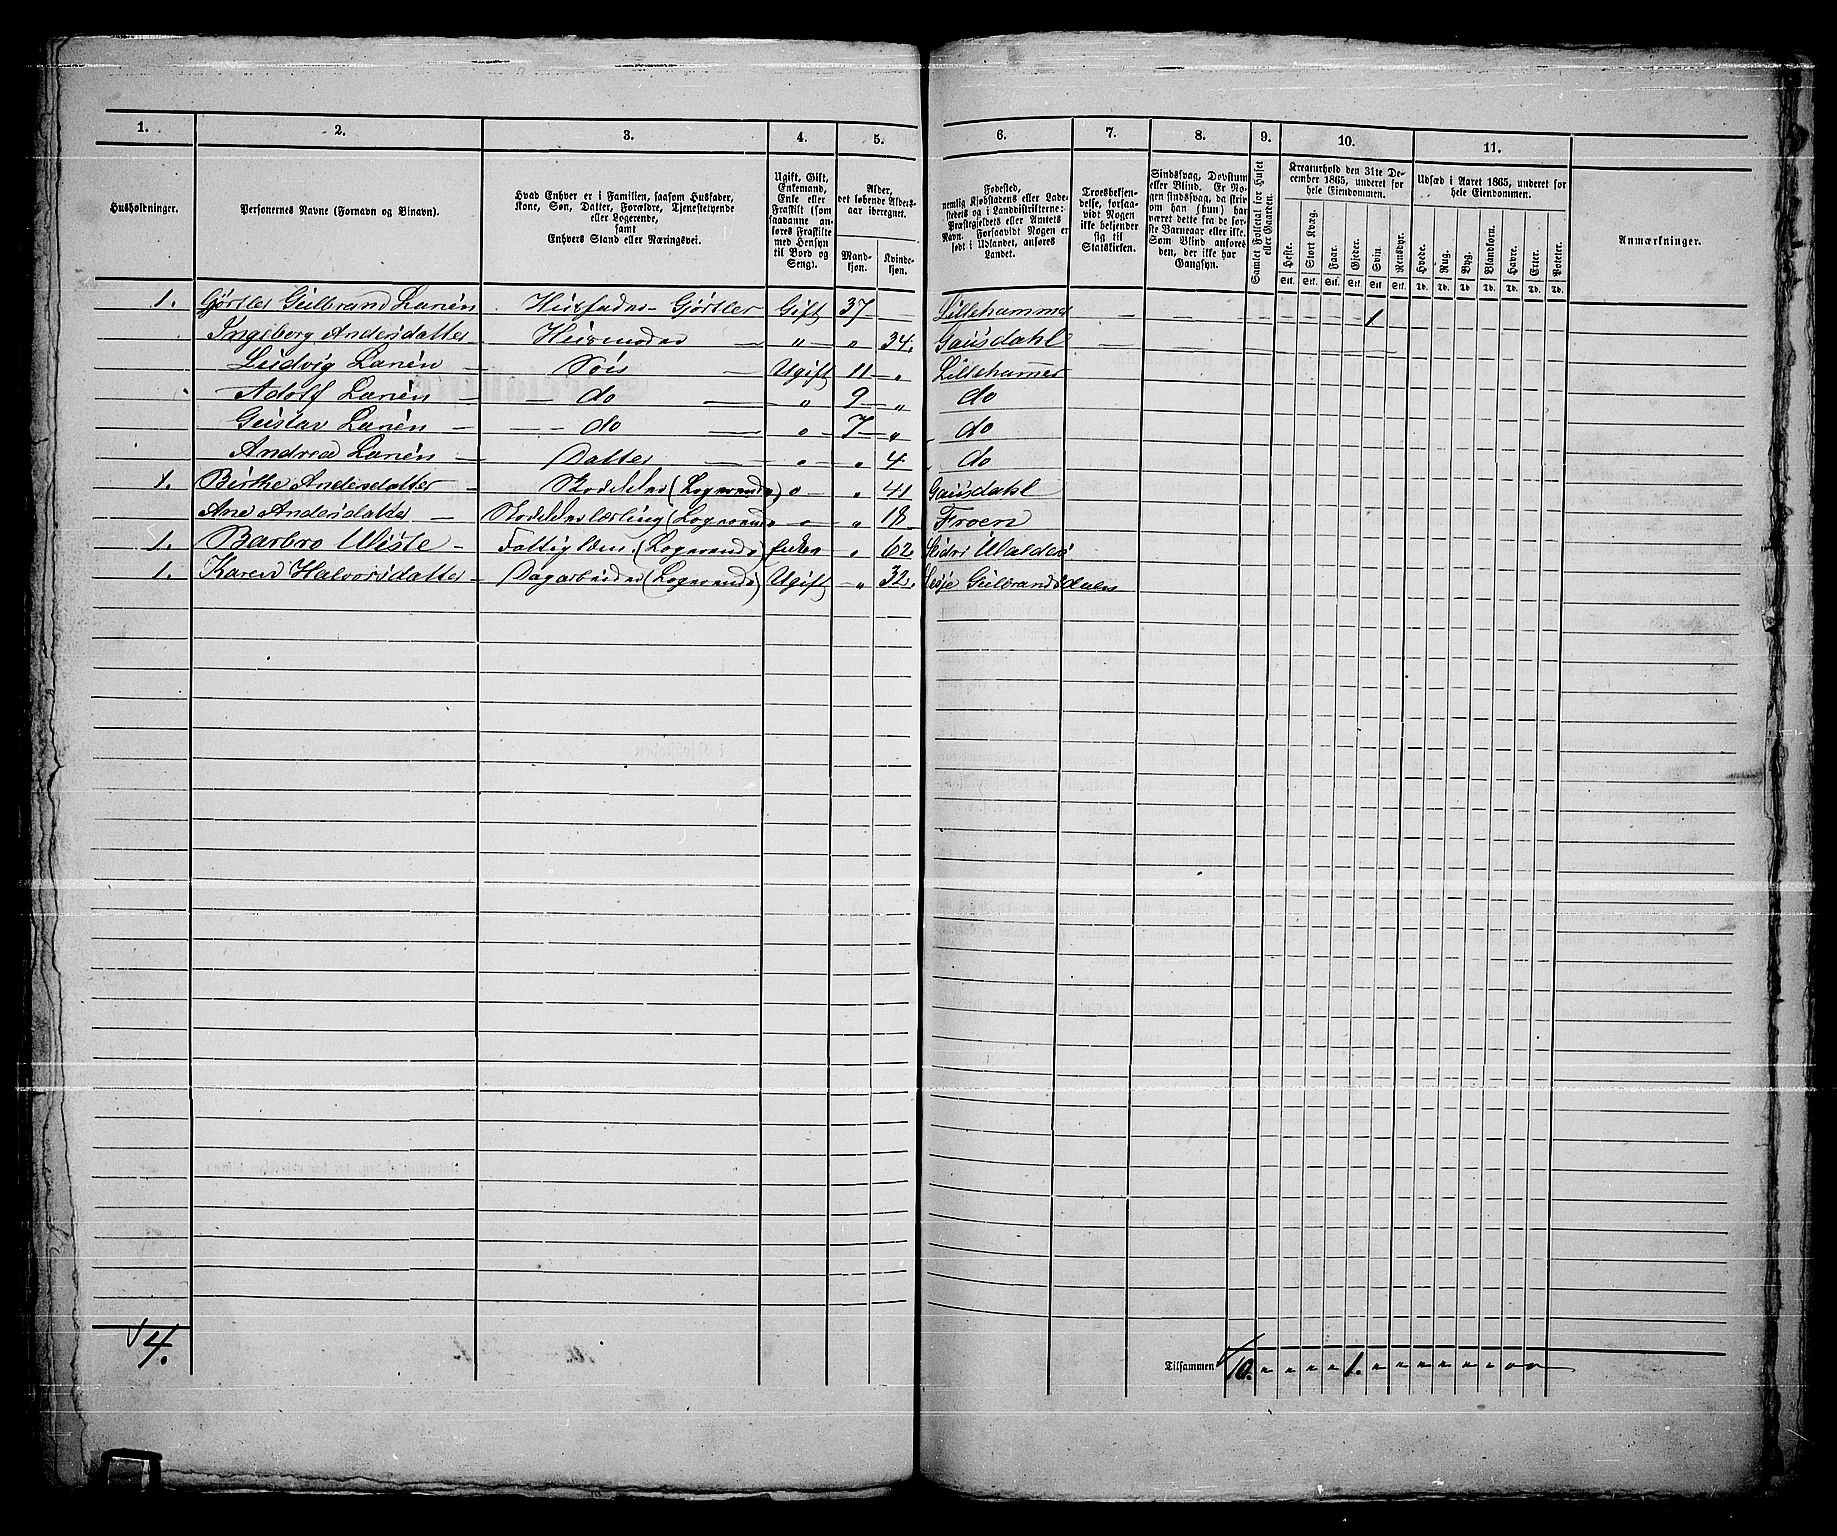 1. 2. 3. 4. 5. 6. 7. 8. 9. 10. 11.
Husholdninger.
Personernes Navne (Fornavn og Binavn).
Hvad Enhver er i Familien, saasom Husfader,
Kone, Søn, Datter, Forældre, Tjenestetyende
eller Logerende,
samt
Enhvers Stand eller Næringsvei.
Ugift, Gift,
Enkemand,
Enke eller
Fraskilt (som
saadanne anføres
Fraskilte
med Hensyn
til Bord og
Seng).
Alder,
det løbende Alders-
aar iberegnet.
Mand-
kjøn.
Kvinde-
kjøn.
Fødested,
nemlig Kjøbstadens eller Lade-
stedets og i Landdistrikterne:
Præstegjeldets eller Amtets
Navn. Forsaavidt Nogen er
født i Udlandet, anføres
Landet.
Troesbekjen-
delse, forsaa-
vidt Nogen
ikke bekjender
sig til
Statskirken.
Sindssvag, Døvstum
eller Blind. Er No-
gen sindssvag, da skriv
om han (hun) har
været dette fra de før-
ste Barneaar eller ikke.
Som Blind anføres
den, der ikke har
Gangsyn.
Samlet Folketal for Huset
eller Gaarden.
Kreaturhold den 31te De-
cember 1865, underet for
hele Eiendommen.
Heste. Stort Kvæg. Faar. Gjeder. Svin. Rensdyr.
Stk. Stk. Stk. Stk. Stk. Stk.
Udsæd i Aaret 1865, underet for
hele Eiendommen.
Hvede. Rug. Byg. Blandkorn. Havre. Erter. Poteter.
Td. Td. Td. Td. Td. Td. Td.
Anmærkninger.
1. Gjørtler Gulbrand Lanén Husfader Gjørtler Gift 37 Lillehammer 1
Ingeborg Andersdatter Husmoder " " 34. Gausdahl
Ludvig Lanén Søn Ugift 11 " Lillehamer
Adolf Lanén do " 9 " do
Gustav Lanén do " 7 " do
Andrea Lanén Datter " " 4 do
1. Birthe Andersdatter (Logerende) " " 41 Gausdahl
Ane Andersdatter (Logerende " " 18 Froen
1. Barbro Wiste Fattiglem. (Logerende) Enke " 62. Walders
1. Karen Halvorsdatter Dagarbeider (Logerende) Ugift " 32. Lesje Gulbrandsdalen
4.
Tilsammen 10. " " " " 1. " " " " " " " "